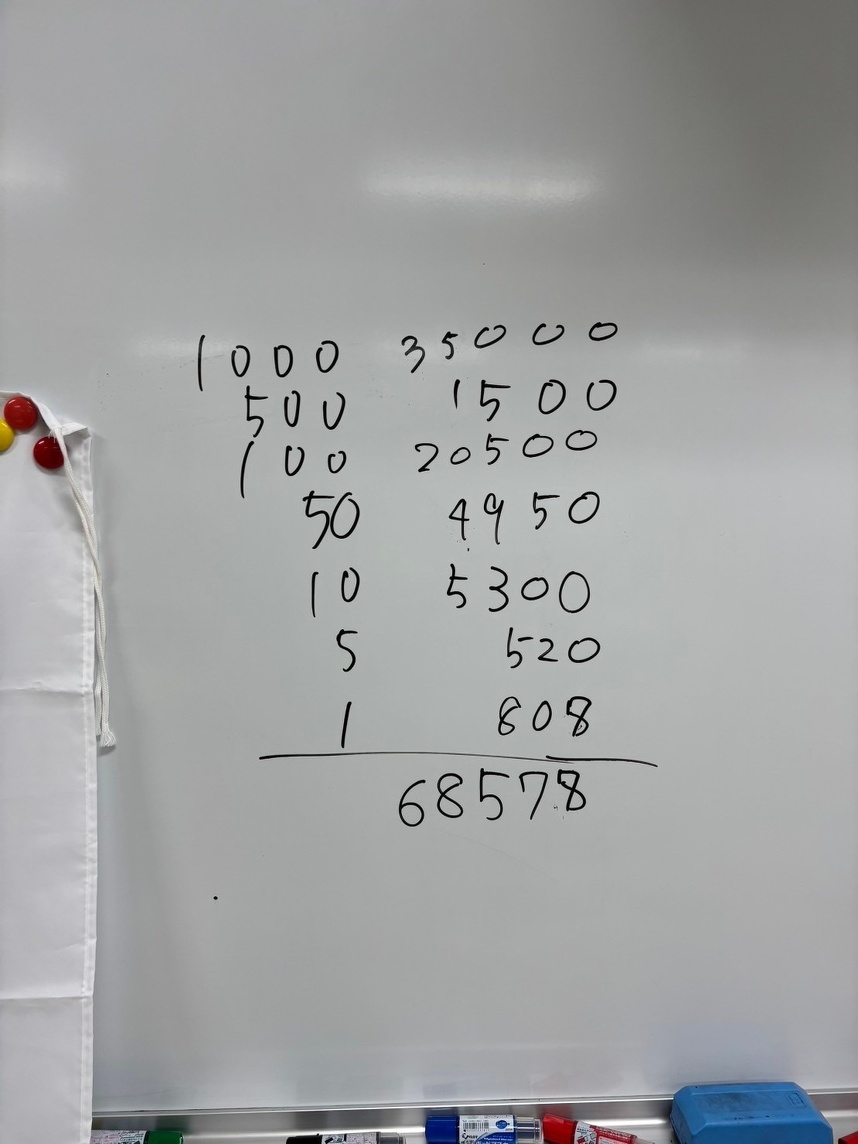 1000 35000
500 1500
100 20500
50 4950
10 5300
5 520
1 808
68578